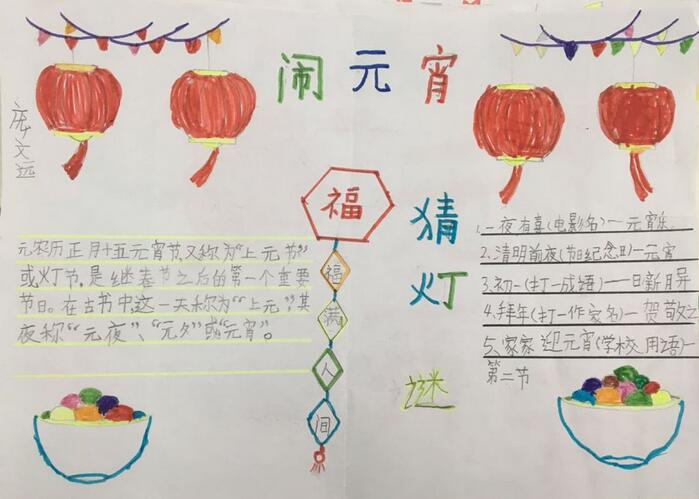 闹元宵
庞文远
元农历正月十五元宵节,又称为“上元节”
或灯节,是继春节之后的第一个重要
节日。在古书中,这一天称为“上元”,其
夜称“元夜”、“元夕”或“元宵”。
福
福
满
人
间
猜灯谜
1.一夜有喜(电影名)一元宵乐.
2.清明前夜(节日纪念日)一元宵
3.初一(打一成语)一日新月异
4.拜年(打一作家名)一贺敬之
5.家家迎元宵(学校用语)一
第二节